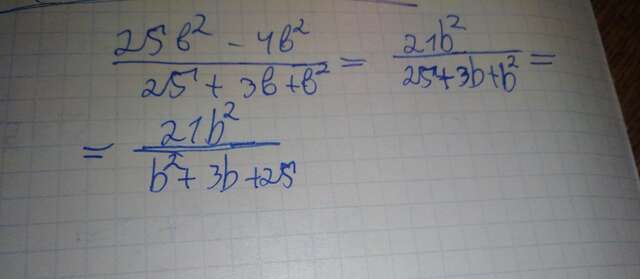 (25b² - 4b²)/(25 + 3b + b²) = 21b²/(25 + 3b + b²) =
= 21b²/(b² + 3b + 25)